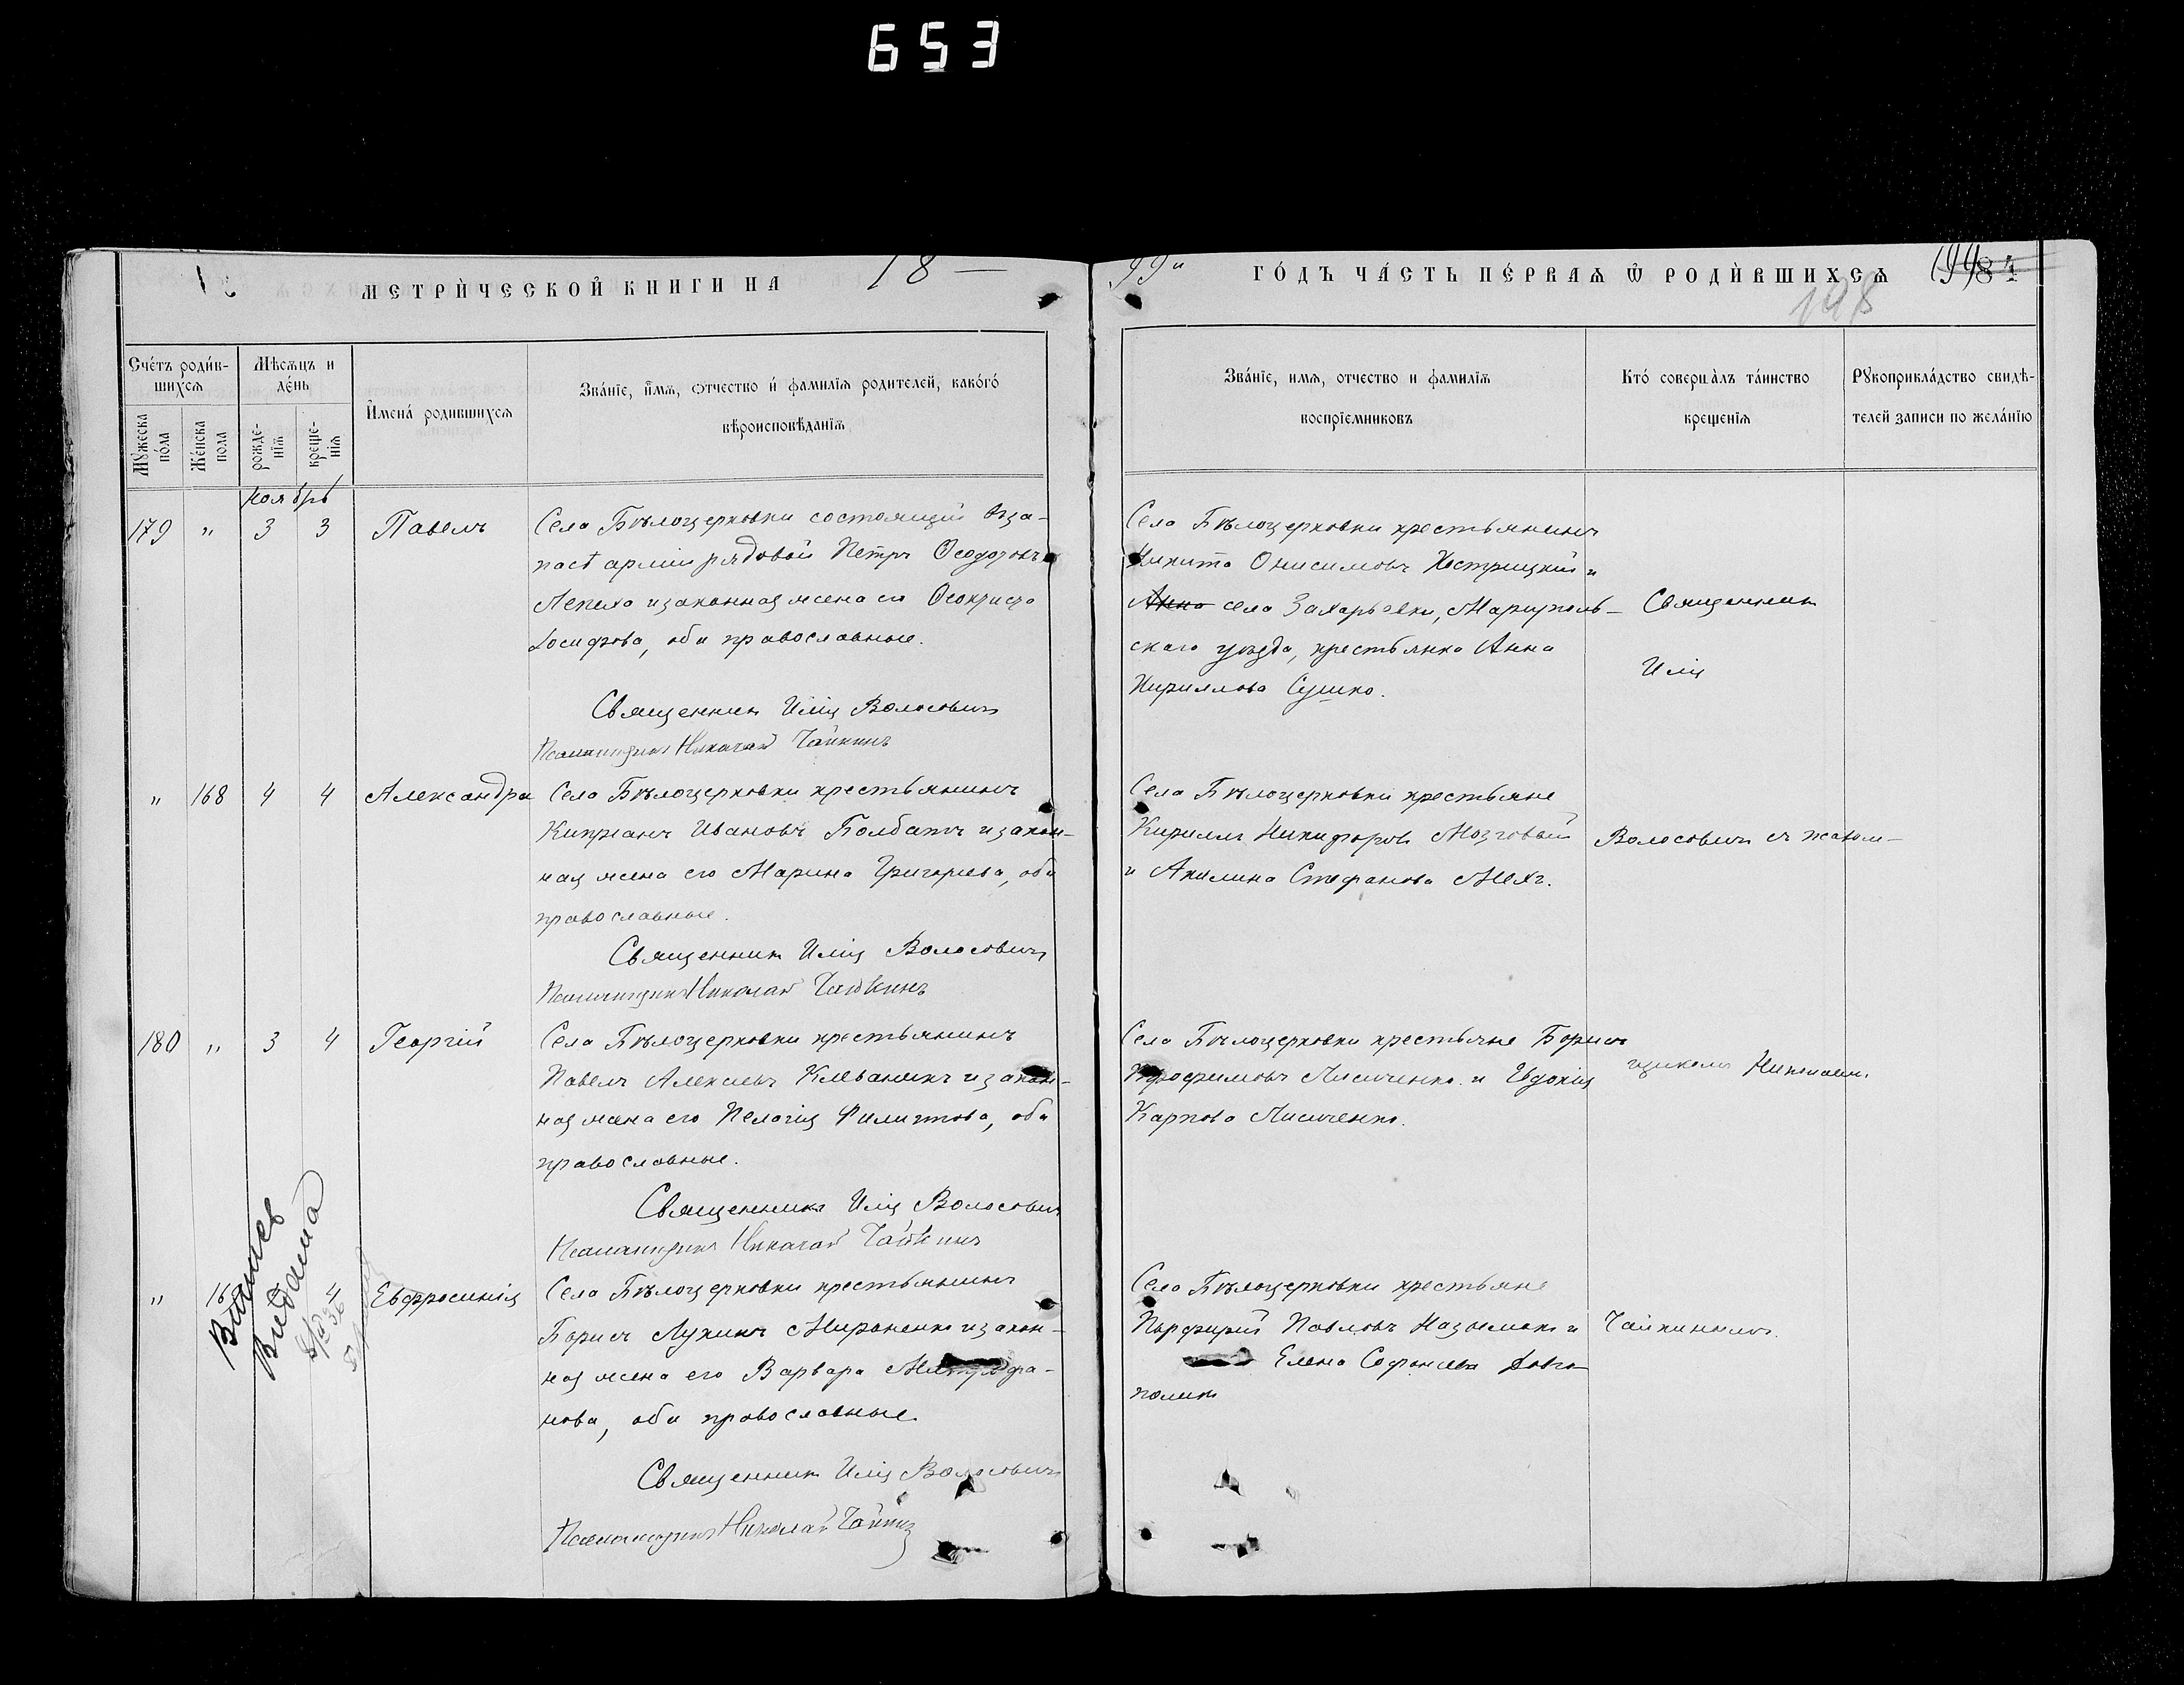 653
МЕТРИ́ЧЕСКОЙ КНИГИ НА 18 —
99й ГО́ДЪ ЧА́СТЬ ПЕ́РВАѦ Ѡ РОДИ́ВШИХСѦ
198
Сче́тъ роди́в-
шихсѧ
Мѣсѧцъ и
де́нь
И҆мена́ родившихсѧ
Зва́нїе, и҆́мѧ, ѻтчество и́ фамилїѧ родителей, како́го́
вѣроисповѣданїѧ
Мꙋ́жеска
по́ла
Же́нска
пола
рожде-
нїѧ
креще-
нїѧ
Зва́нїе, имѧ, отчество и фамилїѧ
воспрїемниковъ
Кто́ соверша̀лъ та́инство
крещенїѧ
Рꙋкоприкла́дство свидѣ-
телей записи по жела́нїю
Ноябрь
179 " 3 3 Павелъ
Села Бѣлоцерковки состоящій въ за-
пасѣ арміи рядовой Петръ Ѳеодоровъ
Лепеха и законная жена его
Іосифова, оба православные.
Священникъ Илія Волосовичъ
Псаломщикъ Николай Чайкинъ
Села Бѣлоцерковки крестьянинъ
Никита Онисимовъ Кострицкій и
Анна села Захарьевки, Маріуполь-
скаго уѣзда, крестьянка Анна
Кириллова Сушко.
Священникъ
Илія
" 168 4 4 Александра
Села Бѣлоцерковки крестьянинъ
Кипріанъ Ивановъ Болбатъ и закон-
ная жена его Марина Григорьева, оба
православные.
Священникъ Илія Волосовичъ
Псаломщикъ Николай Чайкинъ
Села Бѣлоцерковки крестьяне
Кириллъ Никифоровъ Мозговой
и Акилина Стефанова Мехъ.
Волосовичъ съ псалом-
180 " 3 4 Георгій
Села Бѣлоцерковки крестьянинъ
Павелъ Алексіевъ и закон-
ная жена его Пелагія Филиппова, оба
православные.
Священникъ Илія Волосовичъ
Псаломщикъ Николай Чайкинъ
Села Бѣлоцерковки крестьяне Борисъ
Лисиченко и Евдокія
Карпова Лисиченко.
щикомъ Николаемъ
" 16 4 Евфросинія
Витяг
видана
Села Бѣлоцерковки крестьянинъ
Борисъ Лукинъ Мироненко и закон-
ная жена его Варвара Митрофа-
нова, оба православные.
Священникъ Илія Волосовичъ
Псаломщикъ Николай Чайкинъ
Села Бѣлоцерковки крестьяне
Порфирій Павловъ и
Елена Софоніева Довго-
полик
Чайкинымъ.